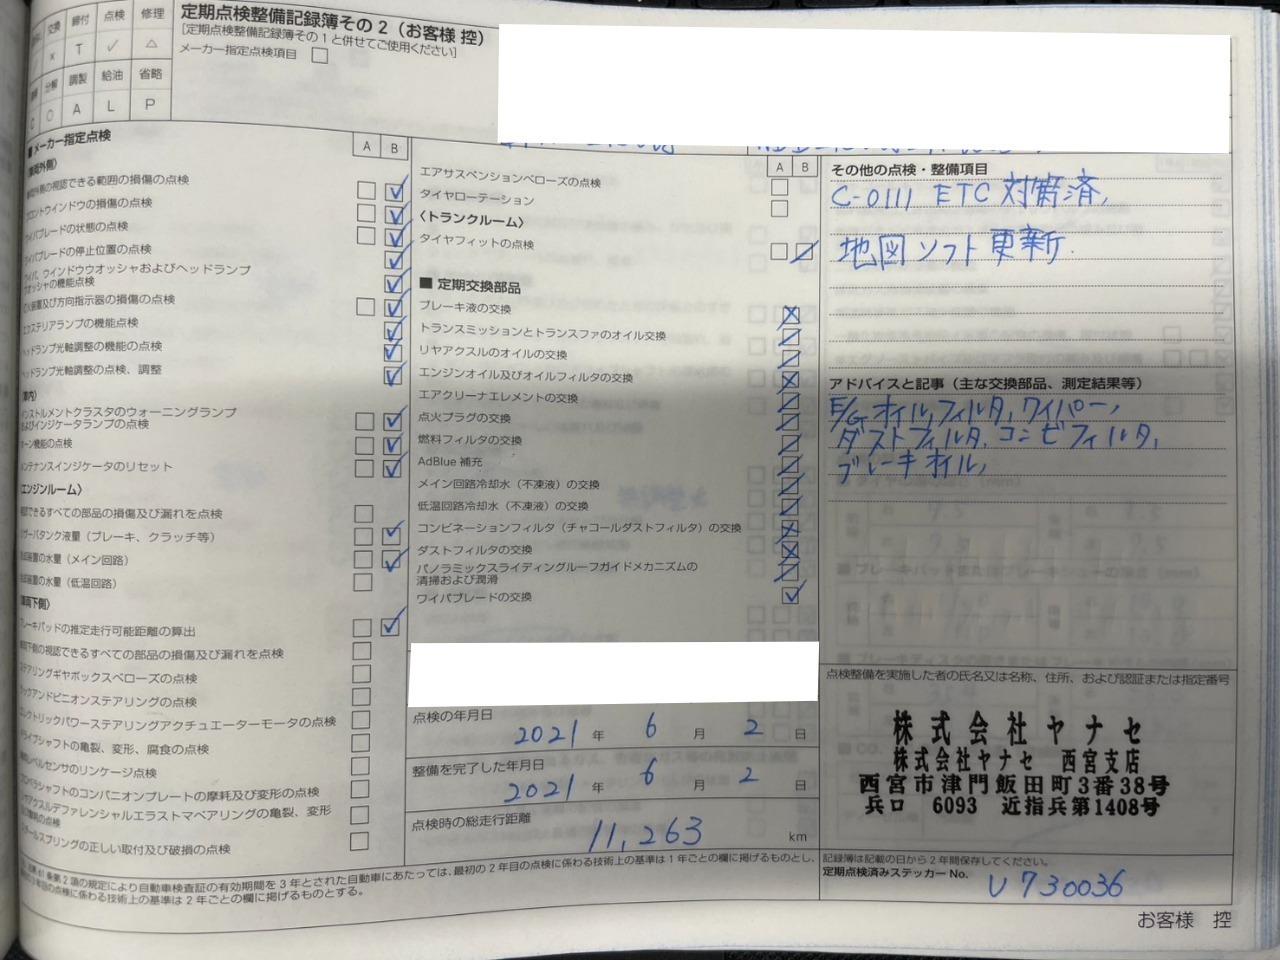 交換 締付 点検 修理
× T ✓ △
分解 調製 給油 省略
C O A L P
定期点検整備記録簿その2（お客様 控）
［定期点検整備記録簿その1と併せてご使用ください］
メーカー指定点検項目
■ メーカー指定点検
A B
視認できる範囲の損傷の点検
フロントウインドウの損傷の点検
ワイパブレードの状態の点検
ワイパブレードの停止位置の点検
ウインドウウオッシャおよびヘッドランプ
ウオッシャの機能点検
及び方向指示器の損傷の点検
エクステリアランプの機能点検
ヘッドランプ光軸調整の機能の点検
ヘッドランプ光軸調整の点検、調整
インストルメントクラスタのウォーニングランプ
およびインジケータランプの点検
ホーン機能の点検
メンテナンスインジケータのリセット
〈エンジンルーム〉
視認できるすべての部品の損傷及び漏れを点検
リザーバタンク液量（ブレーキ、クラッチ等）
の水量（メイン回路）
の水量（低温回路）
ブレーキパッドの推定走行可能距離の算出
下側の視認できるすべての部品の損傷及び漏れを点検
ステアリングギヤボックスベローズの点検
ラックアンドピニオンステアリングの点検
エレクトリックパワーステアリングアクチュエーターモータの点検
ドライブシャフトの亀裂、変形、腐食の点検
レベルセンサのリンケージ点検
プロペラシャフトのコンパニオンプレートの摩耗及び変形の点検
リヤアクスルデファレンシャルエラストマベアリングの亀裂、変形
の点検
スプリングの正しい取付及び破損の点検
A B
エアサスペンションベローズの点検
タイヤローテーション
〈トランクルーム〉
タイヤフィットの点検
■ 定期交換部品
ブレーキ液の交換
トランスミッションとトランスファのオイル交換
リヤアクスルのオイルの交換
エンジンオイル及びオイルフィルタの交換
エアクリーナエレメントの交換
点火プラグの交換
燃料フィルタの交換
AdBlue 補充
メイン回路冷却水（不凍液）の交換
低温回路冷却水（不凍液）の交換
コンビネーションフィルタ（チャコールダストフィルタ）の交換
ダストフィルタの交換
パノラミックスライディングルーフガイドメカニズムの
清掃および潤滑
ワイパブレードの交換
点検の年月日
2021 年 6 月 2 日
整備を完了した年月日
2021 年 6 月 2 日
点検時の総走行距離
11,263 km
その他の点検・整備項目
C-0111 ETC 対策済,
地図ソフト更新.
アドバイスと記事（主な交換部品、測定結果等）
E/G オイル,フィルタ, ワイパー,
ダストフィルタ, コンビフィルタ,
ブレーキオイル,
点検整備を実施した者の氏名又は名称、住所、および認証または指定番号
株式会社ヤナセ
株式会社ヤナセ 西宮支店
西宮市津門飯田町3番38号
兵口 6093 近指兵第1408号
第2項の規定により自動車検査証の有効期間を3年とされた自動車にあたっては、最初の2年目の点検に係わる技術上の基準は1年ごとの欄に掲げるものとし、
の点検に係わる技術上の基準は2年ごとの欄に掲げるものとする。
記録簿は記載の日から2年間保存してください。
定期点検済みステッカー No. U730036
お客様 控